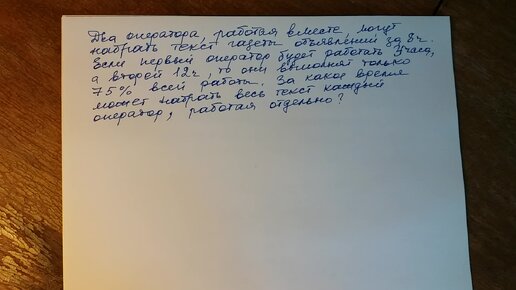 Два оператора, работая вместе, могут
набрать текст газеты объявлений за 8ч.
Если первый оператор будет работать 3часа,
а второй 12ч, то они выполнят только
75% всей работы. За какое время
может набрать весь текст каждый
оператор, работая отдельно?